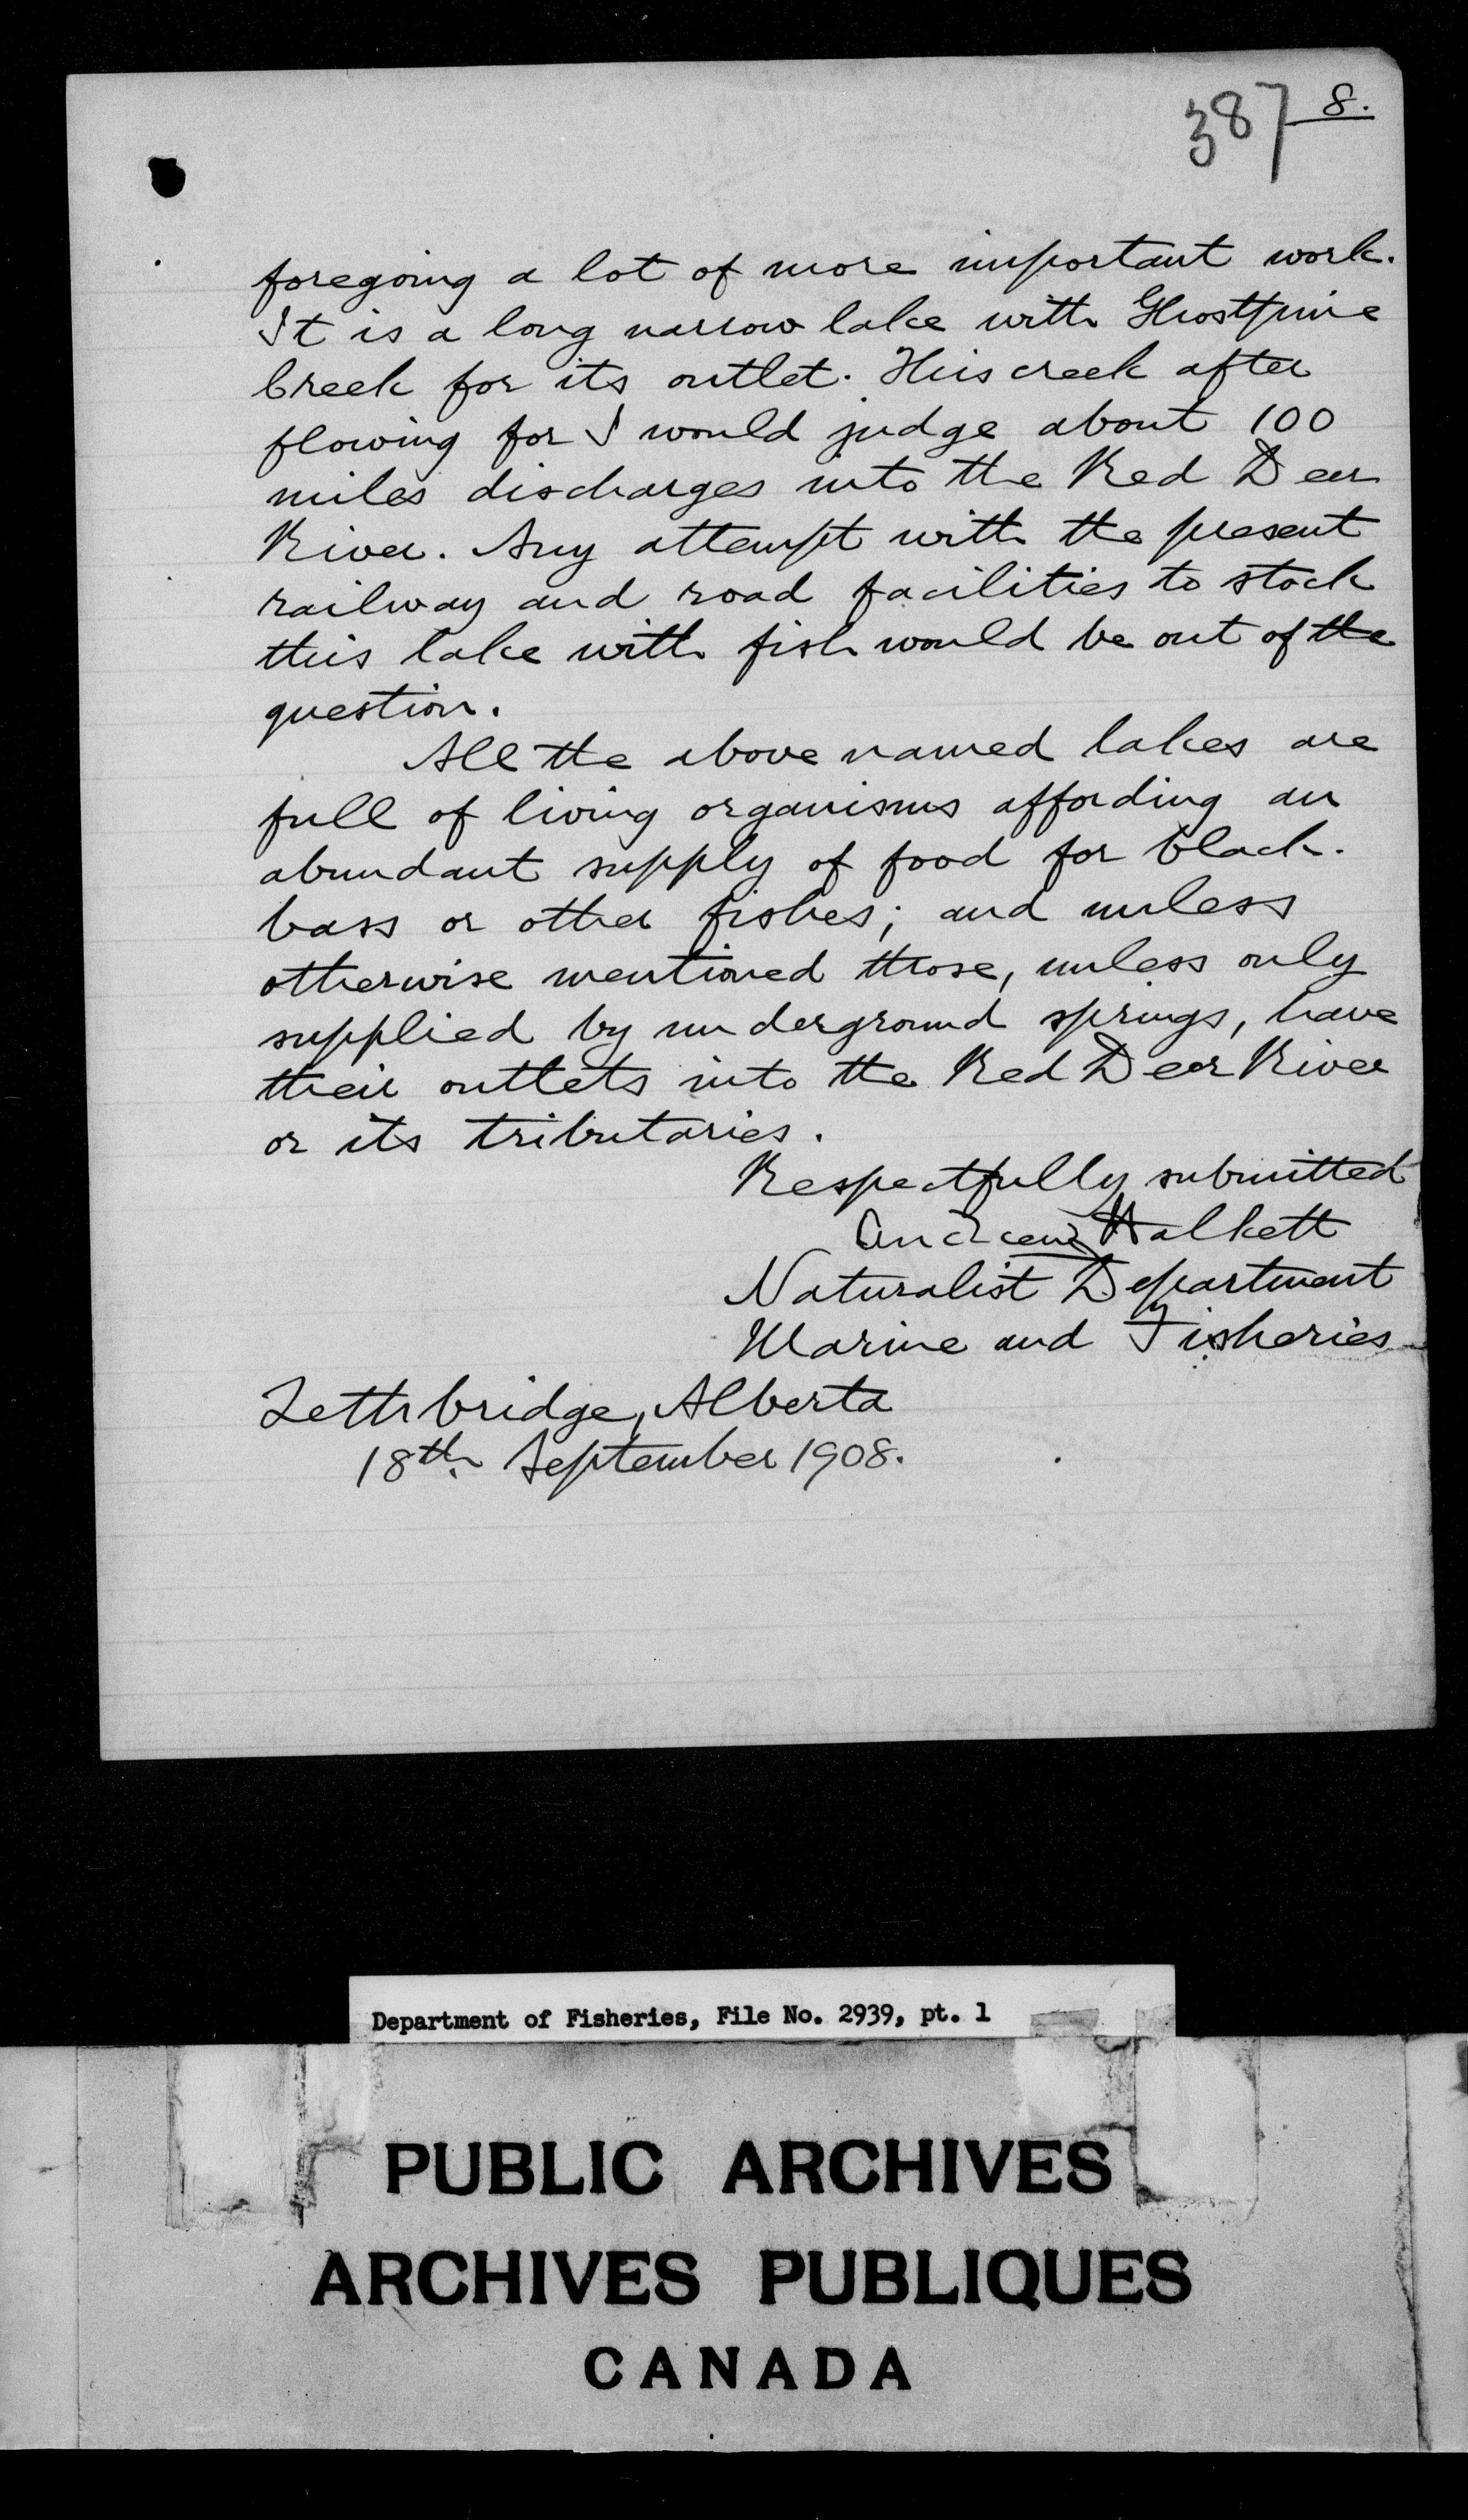 387 8.
foregoing a lot of more important work.
It is a long narrow lake with Ghostpine
Creek for its outlet. This creek after
flowing for I would judge about 100
miles discharges into the Red Deer
River. Any attempt with the present
railway and road facilities to stock
this lake with fish would be out of the
question.
All the above named lakes are
full of living organisms affording an
abundant supply of food for black-
bass or other fishes; and unless
otherwise mentioned those, unless only
supplied by underground springs, have
their outlets into the Red Deer River
or its tributaries.
Respectfully submitted
Andrew Halkett
Naturalist Department
Marine and Fisheries
Lethbridge, Alberta
18th September 1908.
Department of Fisheries, File No. 2939, pt. 1
PUBLIC ARCHIVES
ARCHIVES PUBLIQUES
CANADA